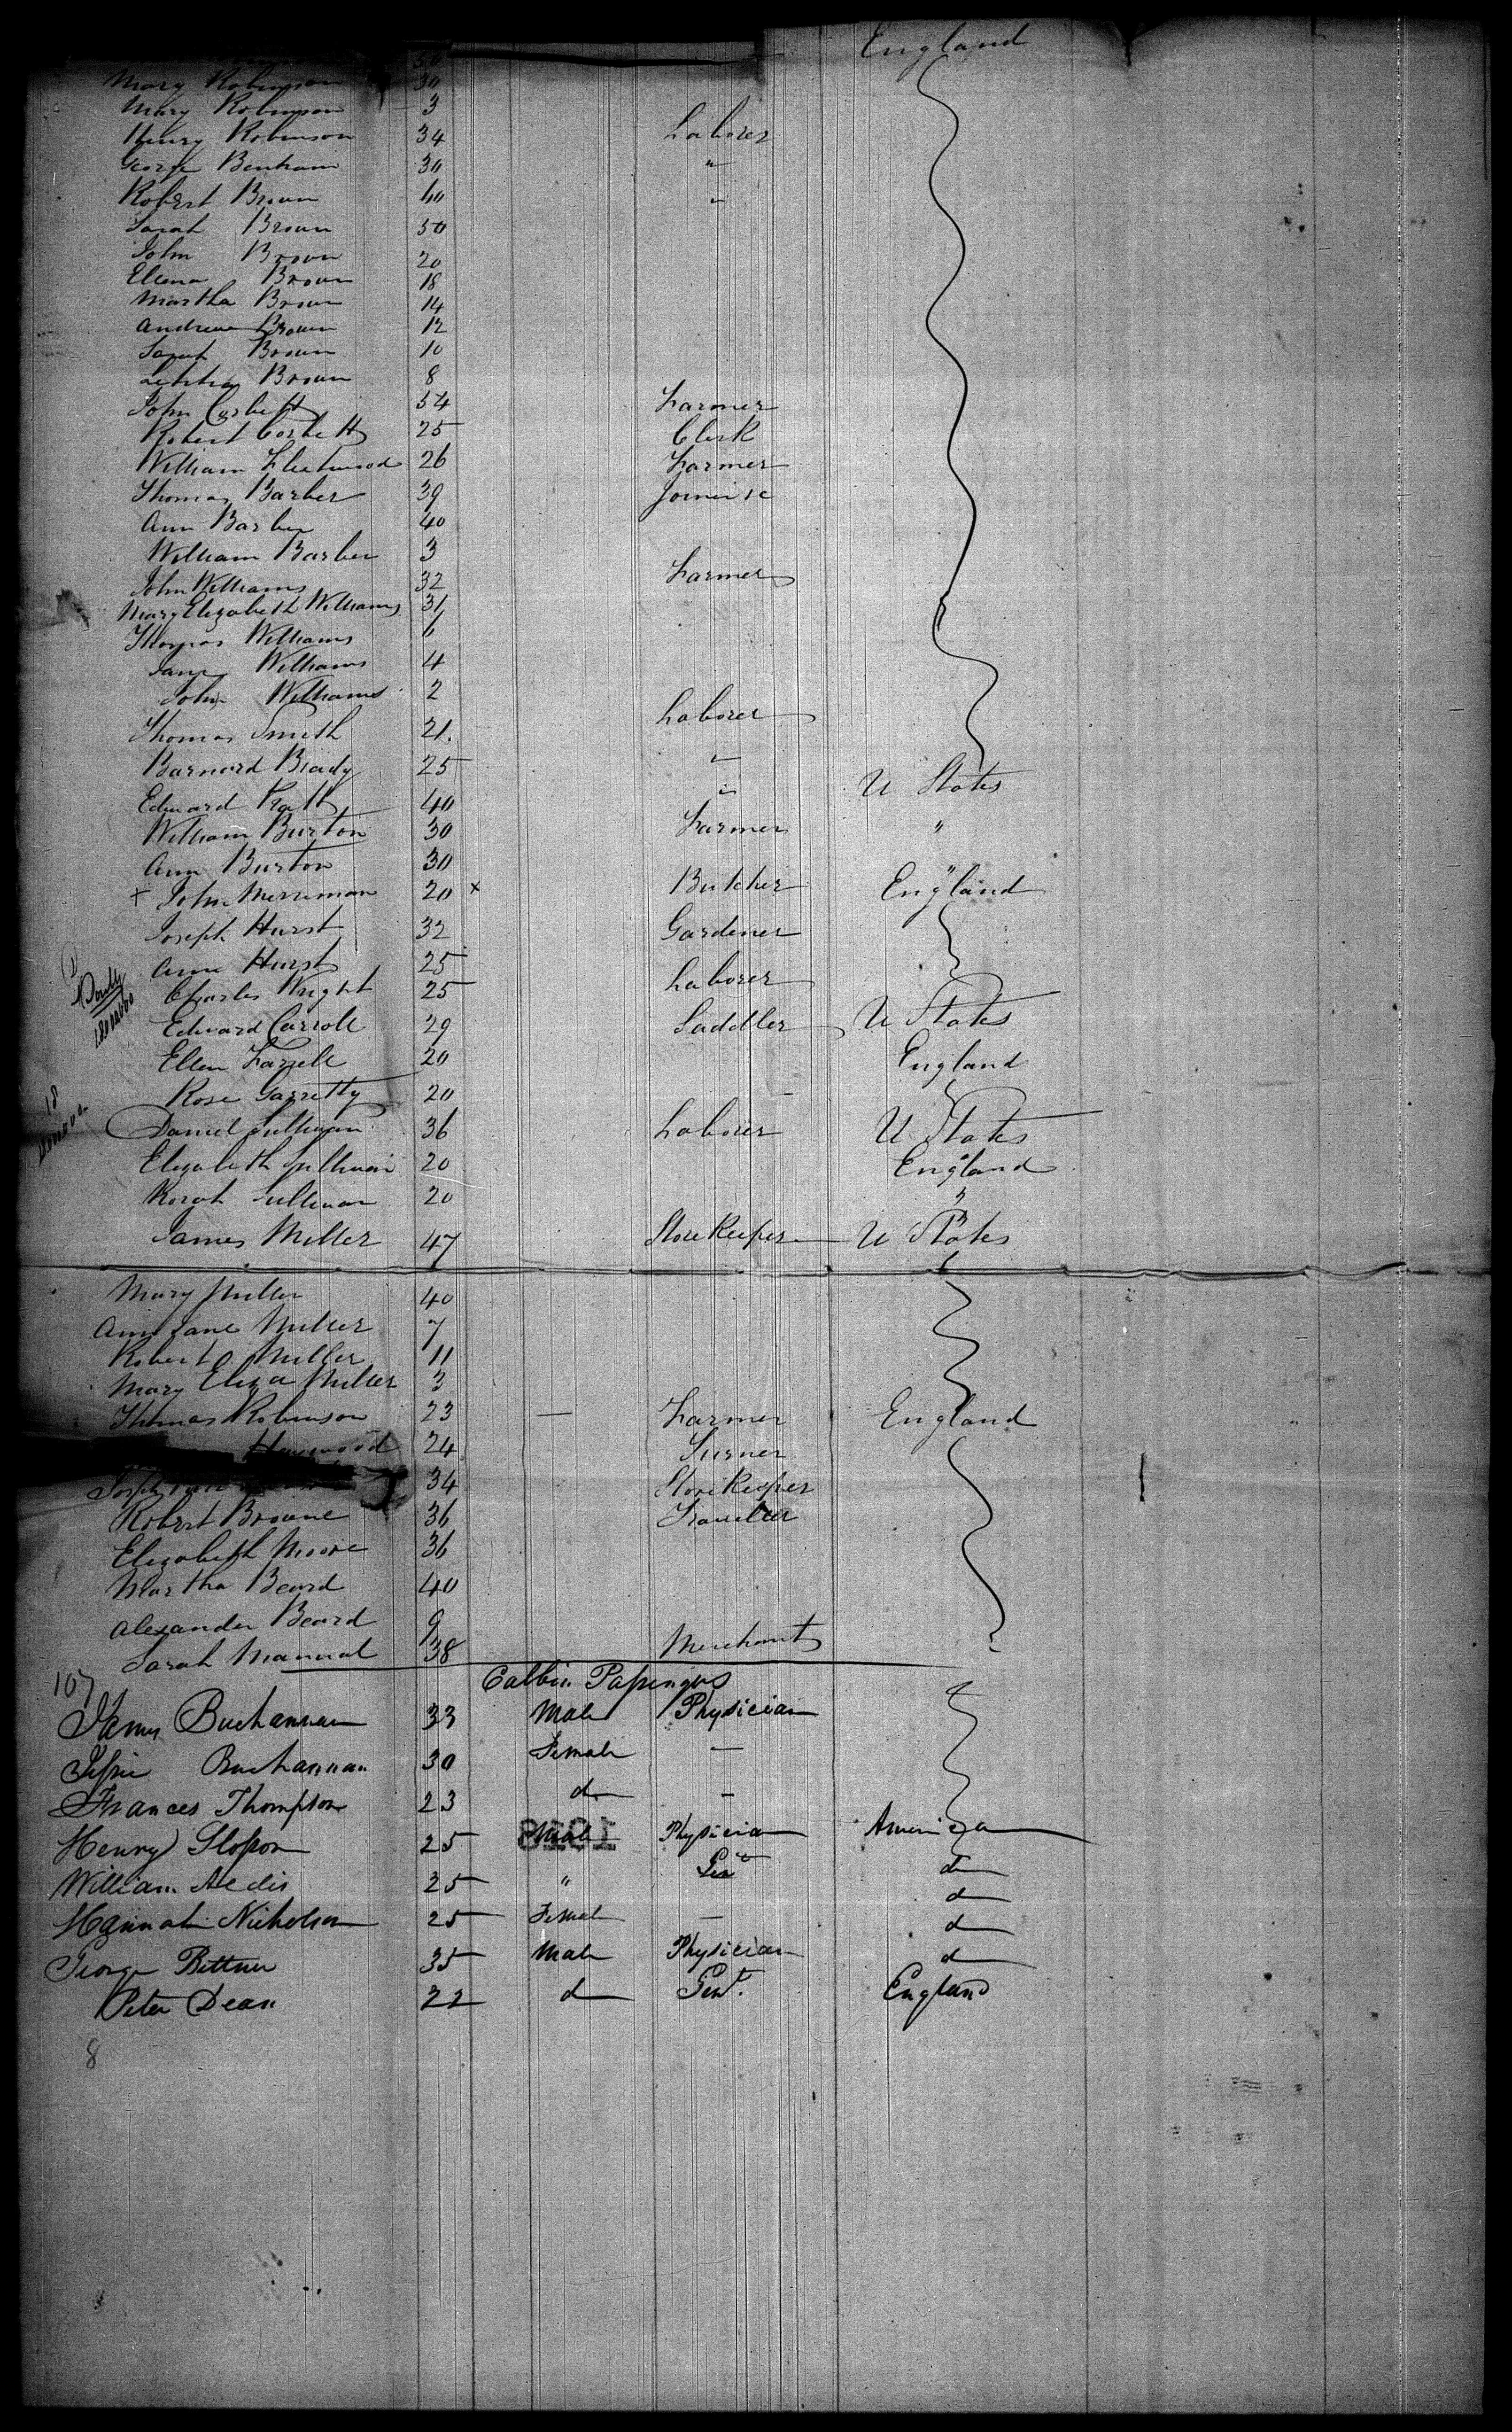 England
Mary Robinson 30
Mary Robinson 3
Henry Robinson 34 Laborer
George Benham 30 "
Robert Brown 60 "
Sarah Brown 50
John Brown 20
Ellena Brown 18
Martha Brown 14
Andrew Brown 12
Sarah Brown 10
Letitia Brown 8
John Corbett 54 Farmer
Robert Corbett 25 Clerk
William Fleetwood 26 Farmer
Thomas Barber 39
Ann Barber 40
William Barber 3
John Williams 32 Farmer
Mary Elizabeth Williams 31
Thomas Williams 6
Williams 4
John Williams 2
Thomas Smith 21. Laborer
Barnard Brady 25 " U States
Edward 40 "
William Burton 30 Farmer "
Ann Burton 30 "
+ John Merriman 20 x Butcher England
Joseph Hurst 32 Gardener
Anne Hurst 25
Charles Wright 25 Laborer
Edward Carroll 29 Saddler U States
Ellen Farrell 20 England
Rose Garretty 20
Daniel Sullivan 36 Laborer U States
Elizabeth Sullivan 20 England
Sullivan 20 "
James Miller 47 Store Keeper U States
Mary Miller 40
Ann Jane Miller 7
Robert Miller 11
Mary Eliza Miller 3
Thomas Robinson 23 — Farmer England
24 Turner
Joseph 34 Store Keeper
Robert Browne 36 Traveller
Elizabeth Moore 36
Martha Beard 40
Alexander Beard 9
Sarah Manual 38 Merchant
107 Cabbin Passengers
James Buchannan 33 Male Physician
Jessie Buchannan 30 Female —
Frances Thompson 23 do —
Henry Slosson 25 Male Physician America
William Aedis 25 " Gent do
Hannah Nicholson 25 Female — do
George Bittner 35 Male Physician do
Peter Dean 22 do Gent. England
8